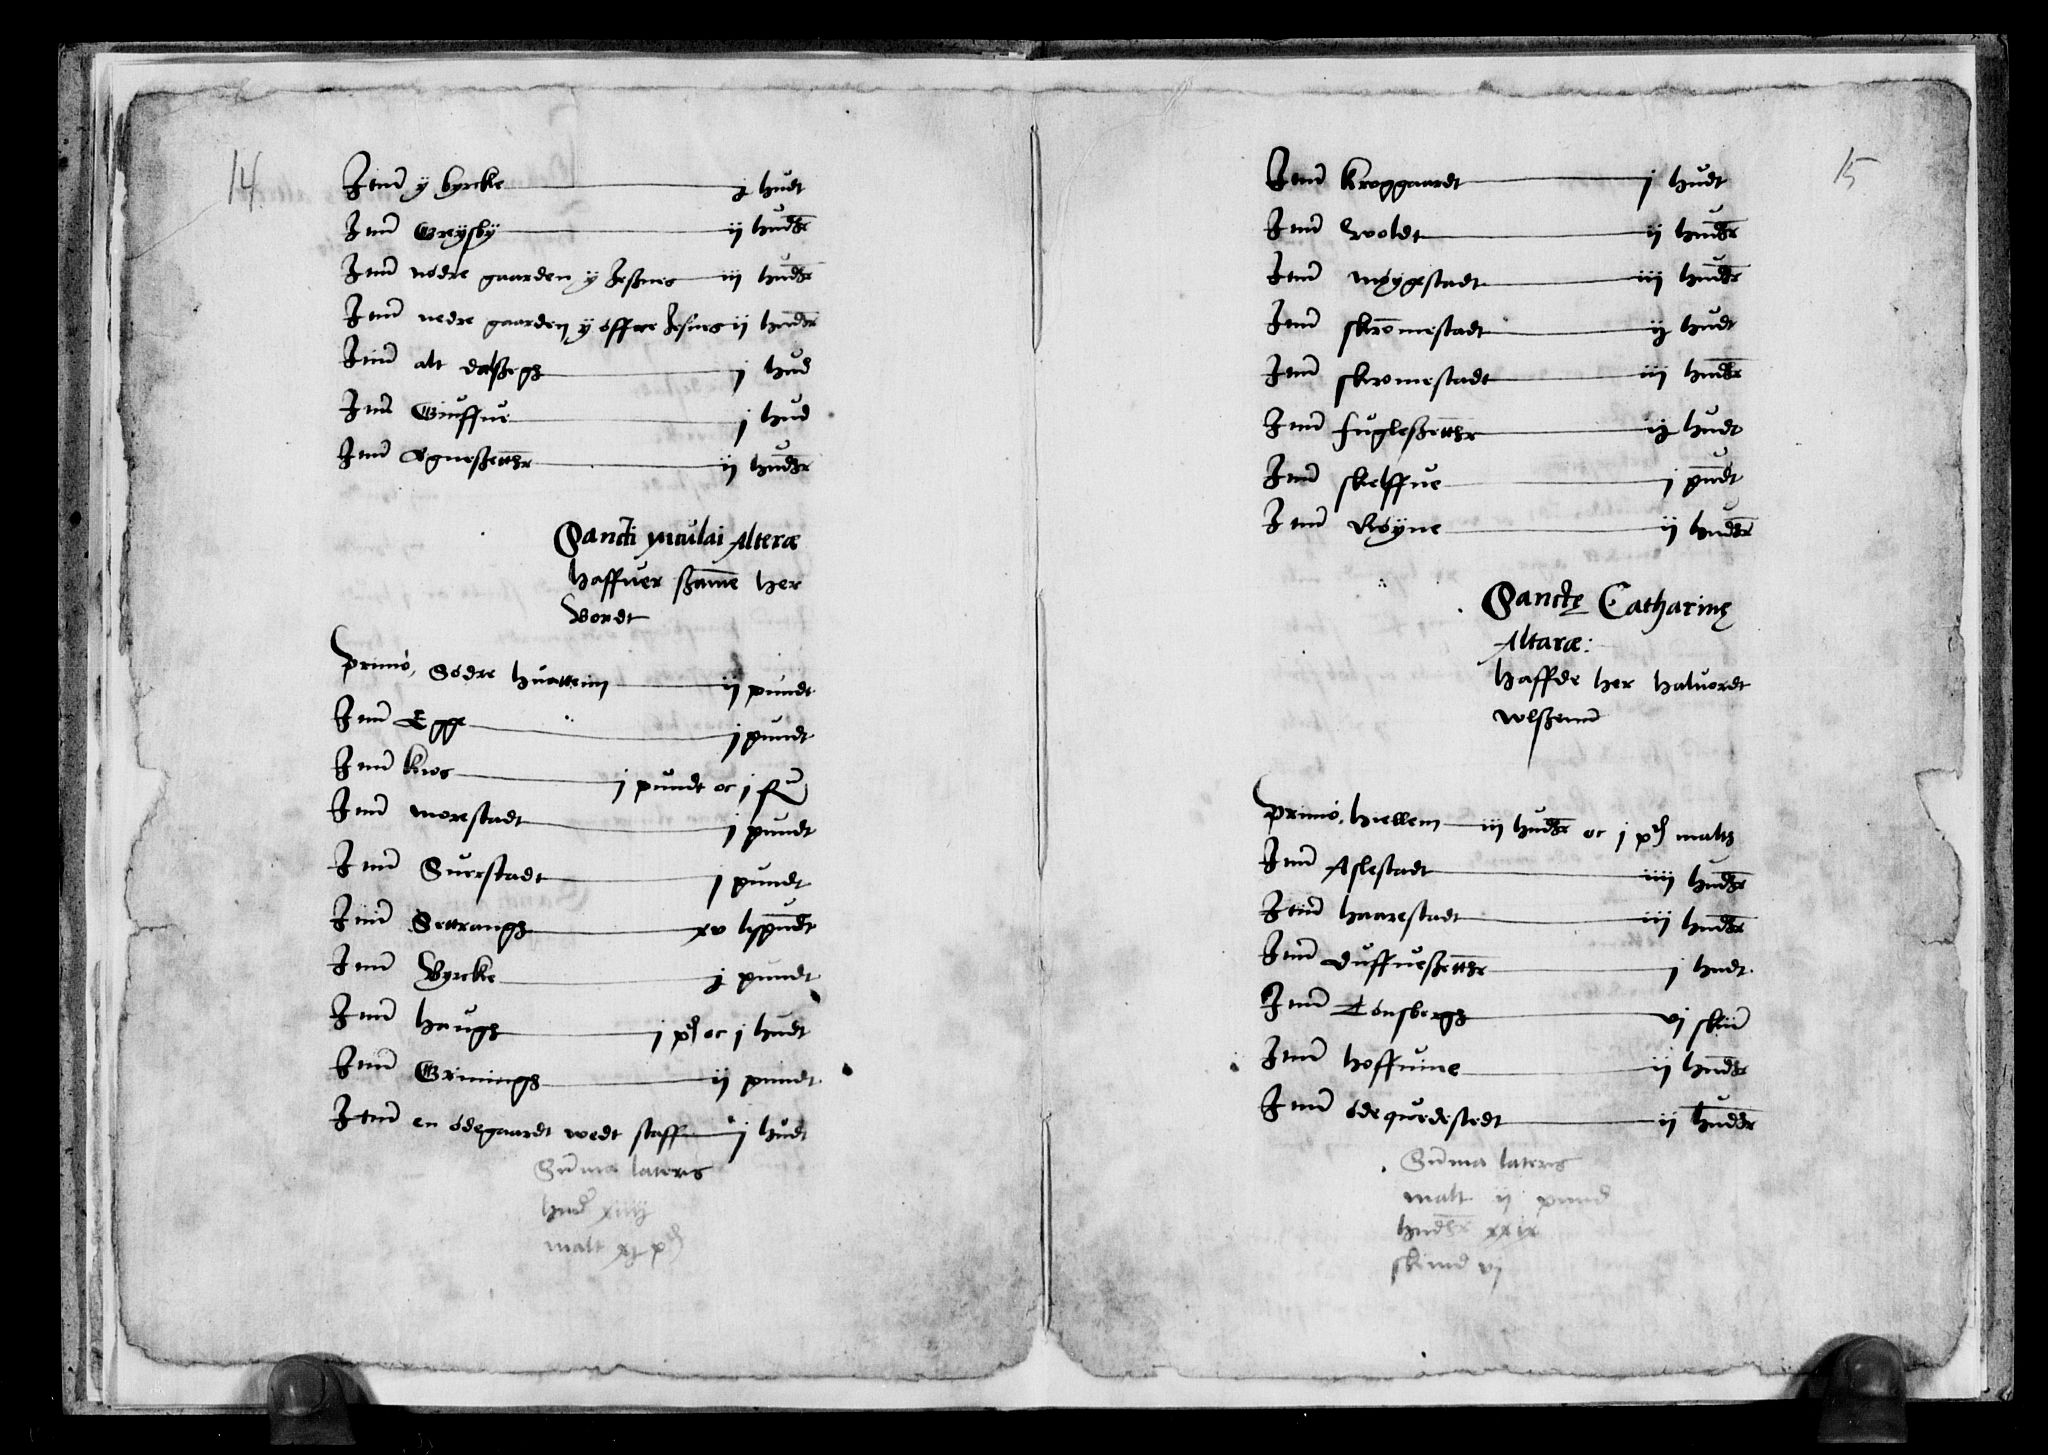 14
Item y byrcke j hudt
Item Greÿsbÿ ij hudher
Item nødre gaarden ÿ Jeßnes iij hudher
Item nedre gaarden ÿ offre Jesnes ij hudher
Item alt j hud
Item Giuffue j hud
Item Øgneßetther ij hudher
Sancti niculai Alteræ
haffuer ßamme her
Bordt
Primo, Sødre huatteim ij pundt
Item Egge j pundt
Item Kros j pundt oc j
Item morestadt j pundt
Item Suerstadt j pundt
Item Settrangh xv lispundt
Item Byrcke j pundt
Item haugh j pd oc j hudt
Item Griningh ij pundt
Item en ødegaardt wedt staffn j hudt
Summa lateris
hud xiiij
malt xj pd
15
Item Kroggaardt j hudt
Item Woldt ij hudher
Item møÿgestadt iij hudher
Item skrommestadt ij hudt
Item skromestadt iij hudher
Item fugleßetther ij hudt
Item skelffue j pundt
Item Røyne ij hudher
Sancte Catharine
Altaræ:
haffde her haluordt
wlßenn
Primo, hiellem iij hudher oc j pd malth
Item Aslestadt iiij hudher
Item haarestadt iij hudher
Item duffueßetther j hudt
Item Tønsbergh vj skin
Item hoffuine ij hudher
Item ødequedestedt ij hudher
Summa lateris
malt ij pund
hudher xxix
skind vj